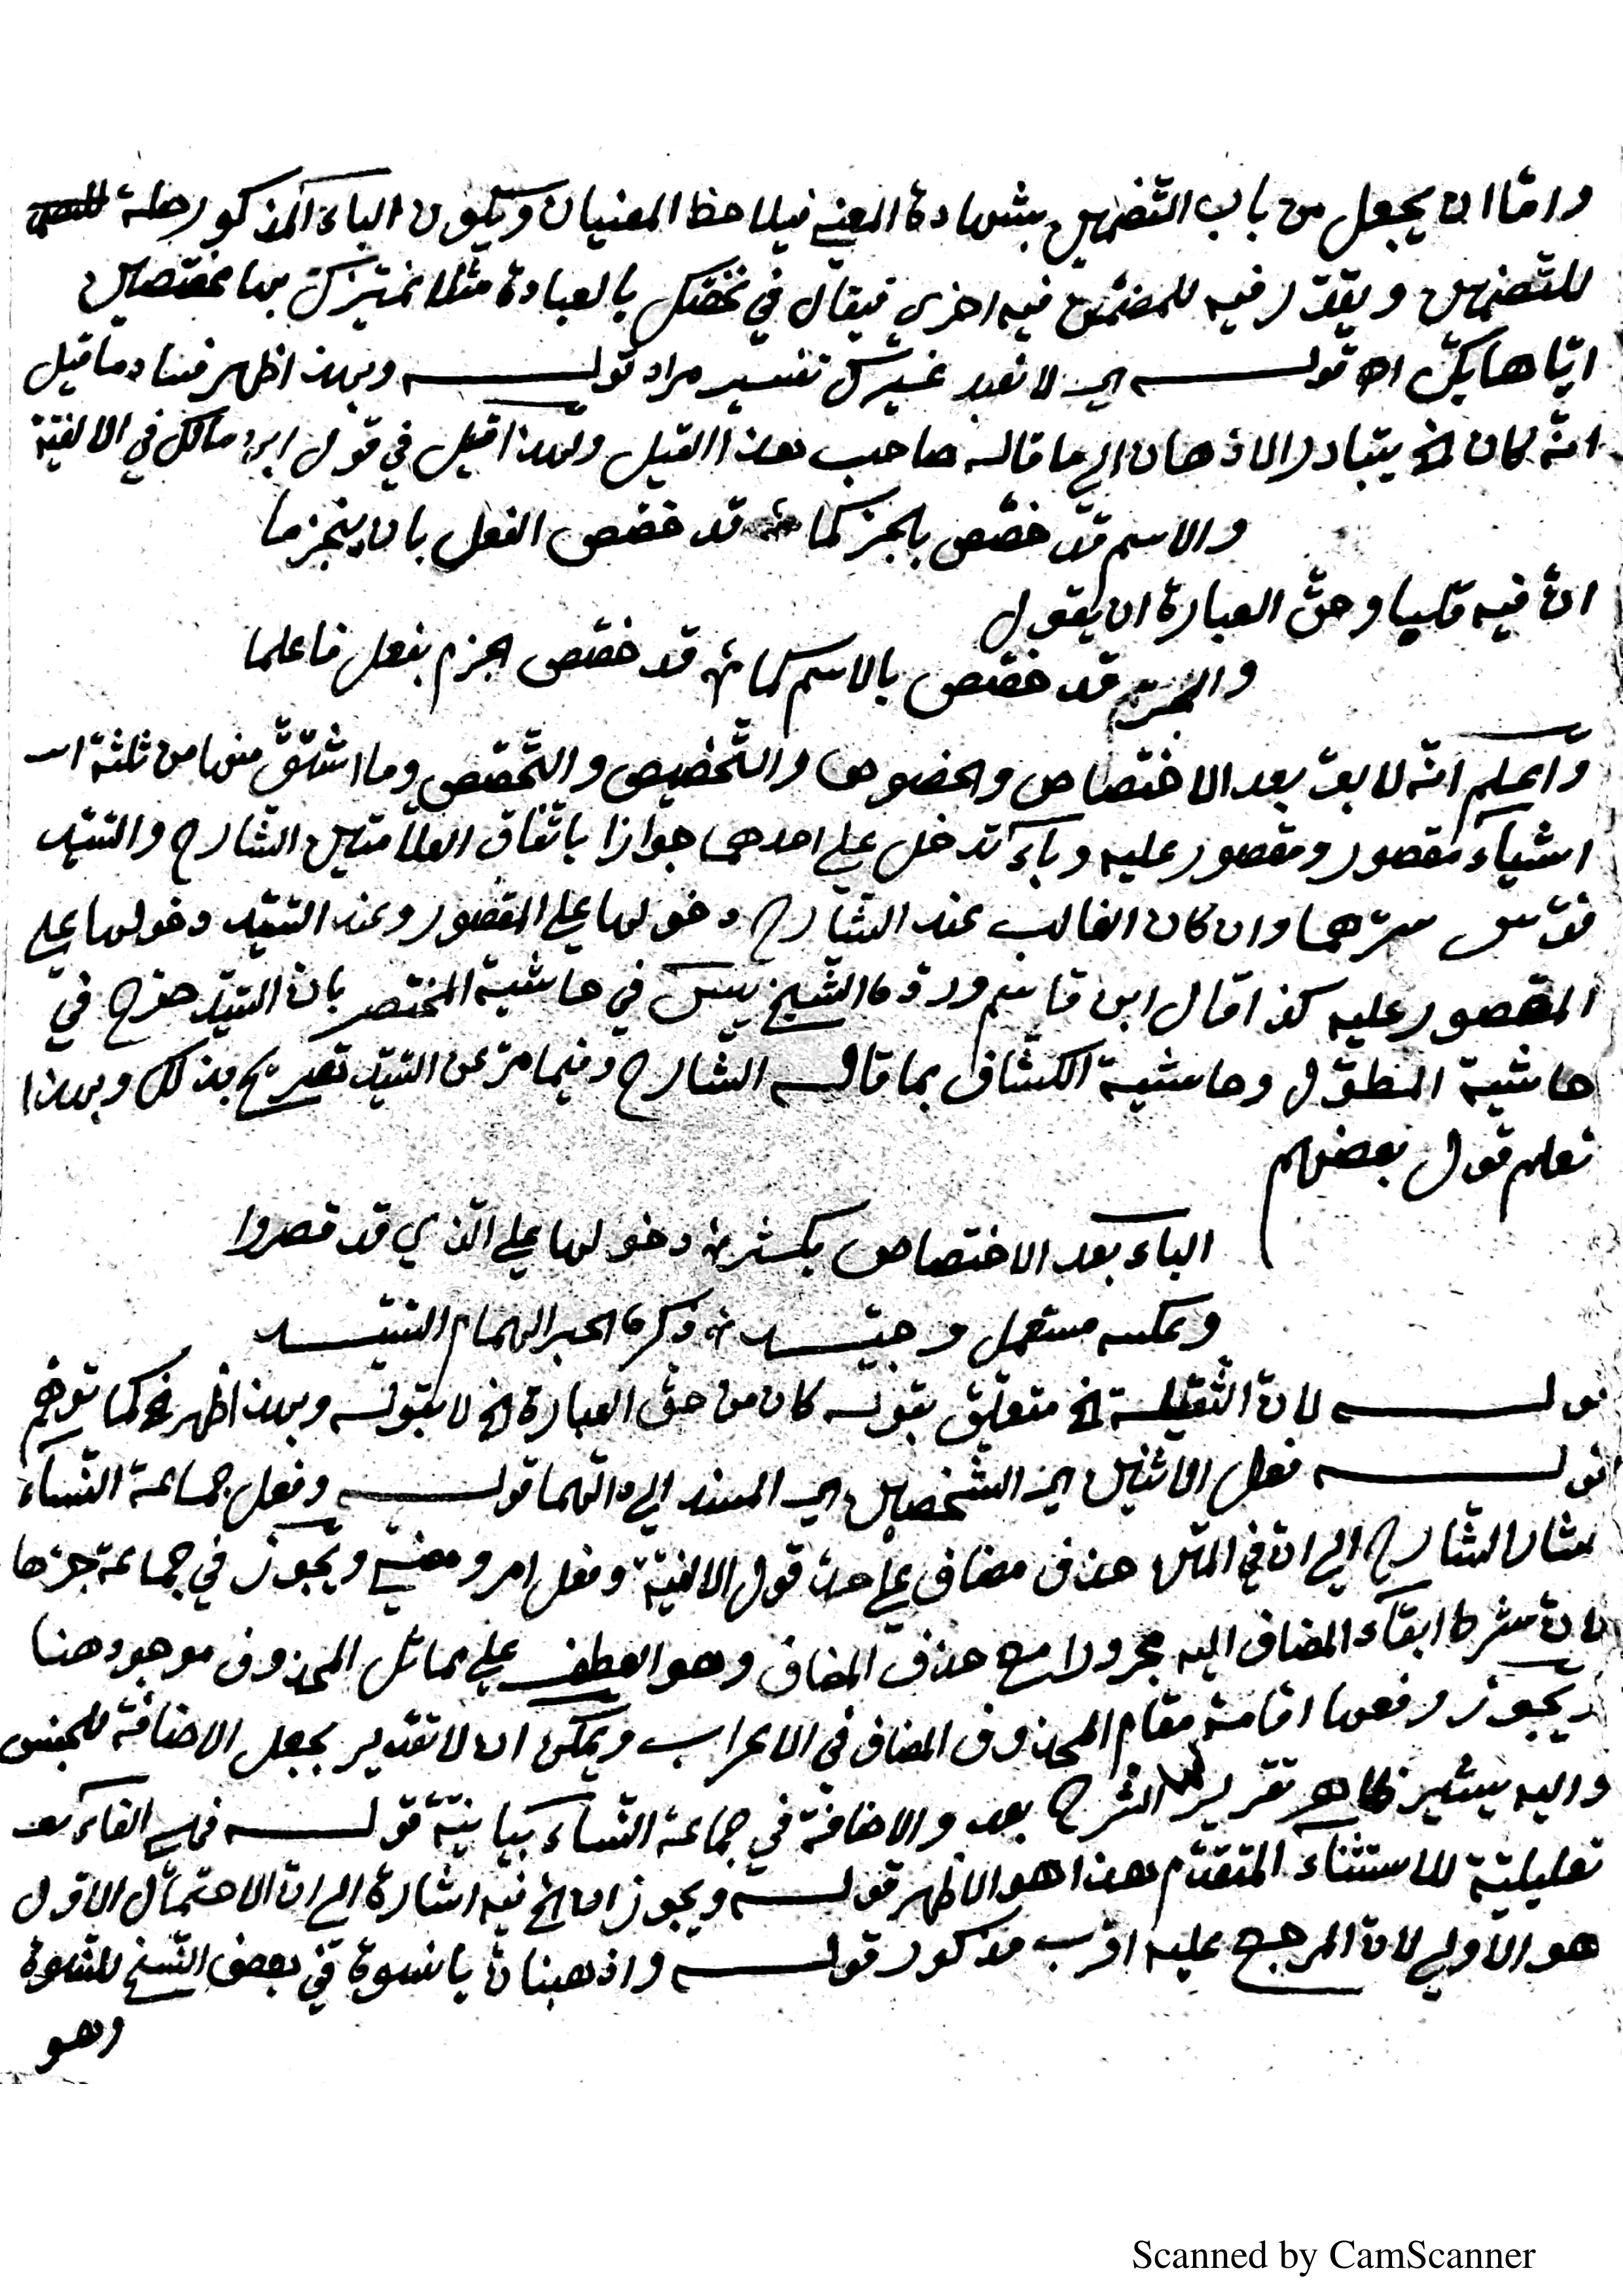 واما ان يجعل من باب التضمين بشهادة المعنى فيلاحظ المعنيان ويكون الباء المذكور صلة
للتضمين ويقدر فيه للمضمن فيه اخرى فيقال في نخصك بالعبادة مثلا نميزك بها مخصصين
اياها بك اه قوله اي لا نعبد غيرك تفسير مراد قوله وبهذا ظهر فساد ما قيل
انه كان الخ يتبادر الاذهان الى ما قاله صاحب هذا القيل ولهذا قيل في قول ابن مالك في الالفية
والاسم قد خصص بالجر كما قد خصص الفعل بان ينجزما
ان فيه قلبا وحق العبارة ان يقول
والجر قد خصص بالاسم كما قد خصص الجزم بفعل فاعلما
واعلم انه لا بد بعد الاختصاص والخصوص والتخصيص والتخصص وما اشتق منها من ثلثة
اشياء مقصور ومقصور عليه وباء تدخل على احدهما جوازا باتفاق العلامتين الشارح والسيد
قدس سرهما وان كان الغالب عند الشارح دخولها على المقصور وعند السيد دخولها على
المقصور عليه كذا قال ابن قاسم ورده الشيخ يس في حاشية المختصر بان السيد صرح في
حاشية المطول وحاشية الكشاف بما قاله الشارح وفيما مر عن السيد تصريح بذلك وبهذا
تعلم قول بعضهم
الباء بعد الاختصاص يكثر دخولها على الذي قد قصروا
وعكسه مستعمل وجيد ذكره الحبر الهمام السيد
قوله لان الثقيلة الخ متعلق بقوله كان من حق العبارة الخ لا بقوله وبهذا ظهر الخ كما توهم
قوله فعل الاثنين اي الشخصين اي المسند الى دالهما قوله وفعل جماعة النساء
اشار الشارح الى ان في المتن حذف مضاف على حد قول الالفية وفعل امر ومضي ويجوز في جماعة جرها
لان شرط ابقاء المضاف اليه مجرورا مع حذف المضاف وهو العطف على مماثل المحذوف موجود هنا
ويجوز رفعها اقامة مقام المحذوف المضاف في الاعراب ويمكن ان لا تقدير بجعل الاضافة للجنس
واليه يشير ظاهر تقرير الشرح بعد والاضافة في جماعة النساء بيانية قوله فهي الفاء
تعليلية للاستثناء المتقدم هذا هو الاظهر قوله ويجوز ان الخ فيه اشارة الى ان الاحتمال الاول
هو الاولى لان المرجع عليه اقرب مذكور قوله واذهبنان يا نسوة في بعض النسخ للنسوة
وهو
Scanned by CamScanner